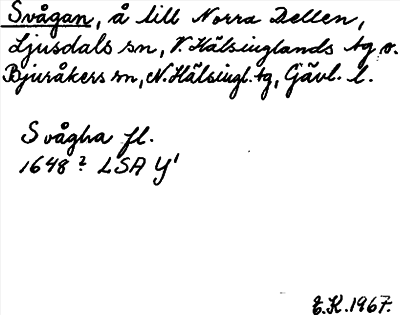 Svågan, å till Norra Dellen,
Ljusdals sn, V. Hälsinglands tg o.
Bjuråkers sn, N. Hälsingl. tg, Gävl. l.
Svågha fl.
1648? LSA Y¹
E.K. 1967.